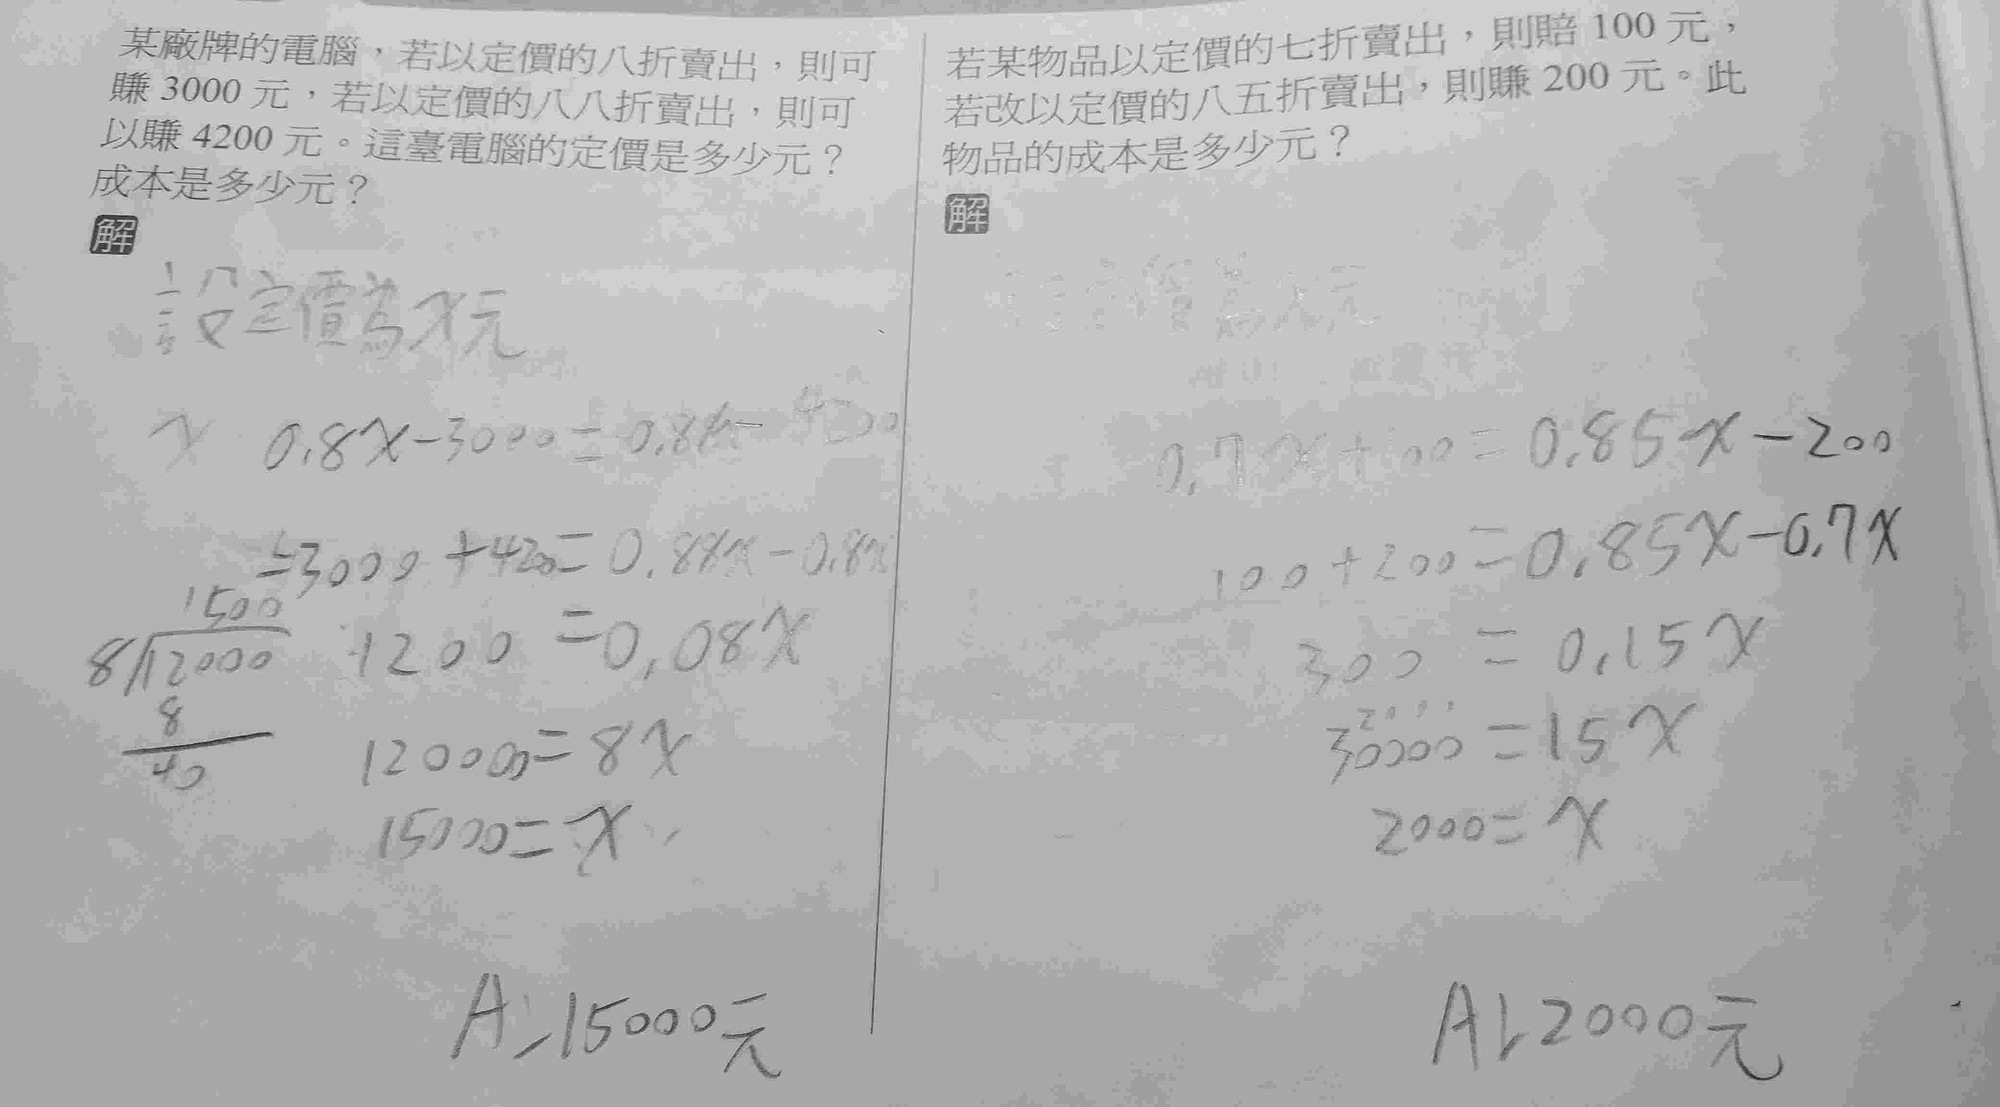 某廠牌的電腦，若以定價的八折賣出，則可
賺 3000 元，若以定價的八八折賣出，則可
以賺 4200 元。這臺電腦的定價是多少元？
成本是多少元？
解
設定價為x元
x 0.8x-3000=0.88x-4200
-3000+4200=0.88x-0.8x
1200=0.08x
1500
8√12000
8
40
12000=8x
15000=x
A:15000元
若某物品以定價的七折賣出，則賠 100 元，
若改以定價的八五折賣出，則賺 200 元。此
物品的成本是多少元？
解
設定價為x元
0.7x+100=0.85x-200
100+200=0.85x-0.7x
300=0.15x
30000=15x
2000=x
A:2000元